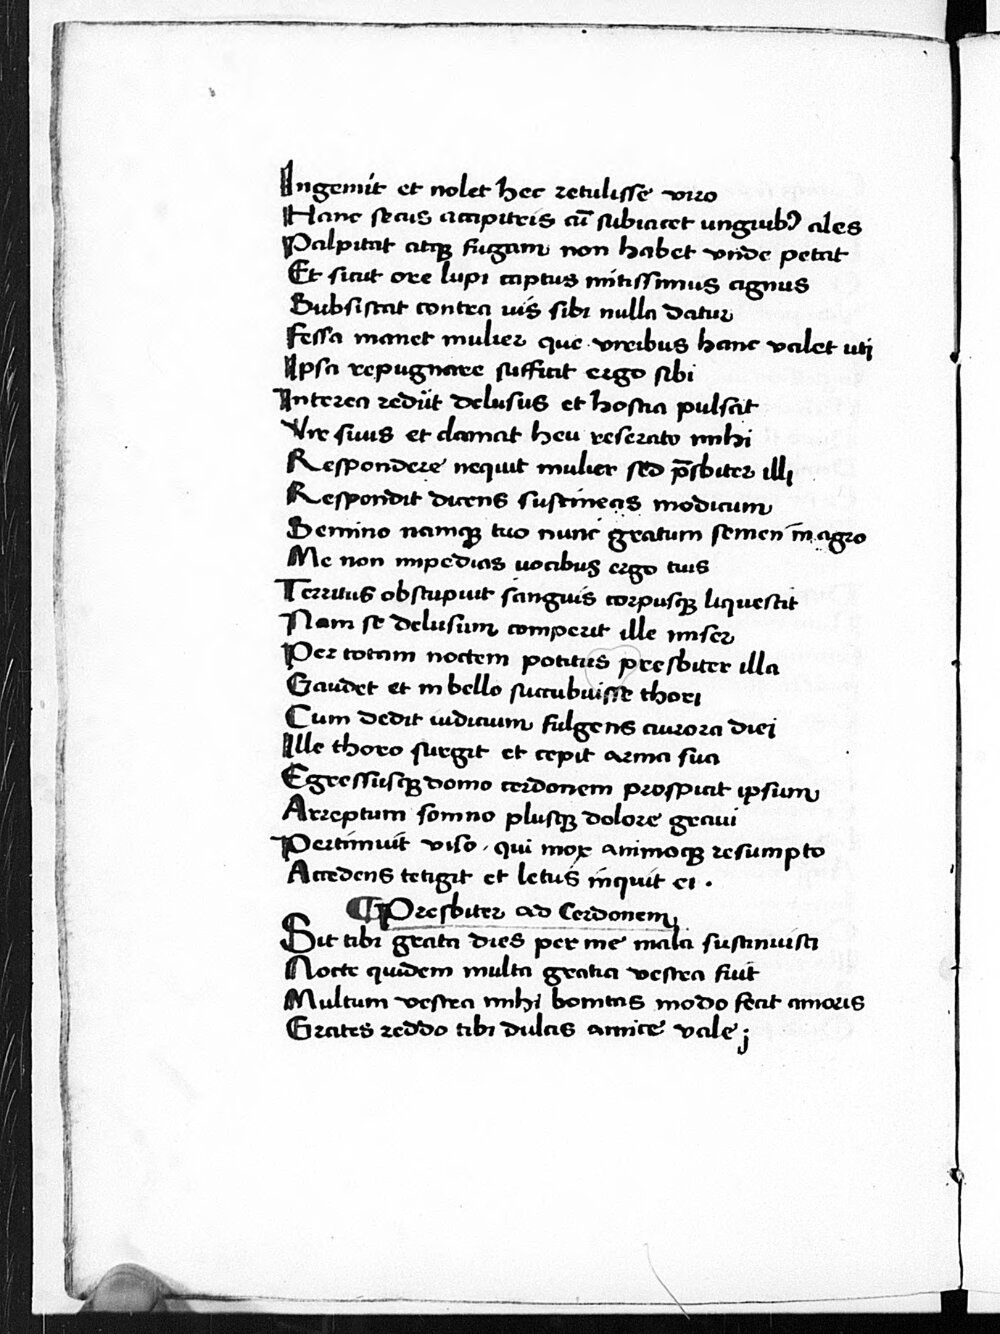 Ingemit et nolet hec retulisse viro
Hanc secus accipitris cū subiacet unguibꝰ ales
Palpitat atqꝫ fugam non habet vnde petat
Et sicut ore lupi captus mitissimus agnus
Subsistat contra uis sibi nulla datur
Fessa manet mulier que viribus hanc valet uti
Ipsa repugnare sufficit ergo sibi
Interea rediit delusus et hostia pulsat
Vir suus et clamat heu reserato mihi
Respondere nequit mulier sed p̄sbiter illi
Respondit dicens sustineas modicum
Semino namqꝫ tuo nunc gratum semen in agro
Me non impedias uocibus ergo tuis
Territus obstupuit sanguis corpusqꝫ liquescit
Nam se delusum comperit ille miser
Per totam noctem potitus presbiter illa
Gaudet et in bello succubuisse thori
Cum dedit iudicium fulgens aurora diei
Ille thoro surgit et cepit arma sua
Egressusqꝫ domo cerdonem prospicit ipsum
Arreptum somno plusqꝫ dolore graui
Pertimuit viso, qui mox animoqꝫ resumpto
Accedens tetigit et letus inquit ei .
Presbiter ad Cerdonem
Sit tibi grata dies per me mala sustinuisti
Nocte quidem multa gratia vestra fiut
Multum vestra mihi bonitas modo fecit amoris
Grates reddo tibi dulcis amice vale;